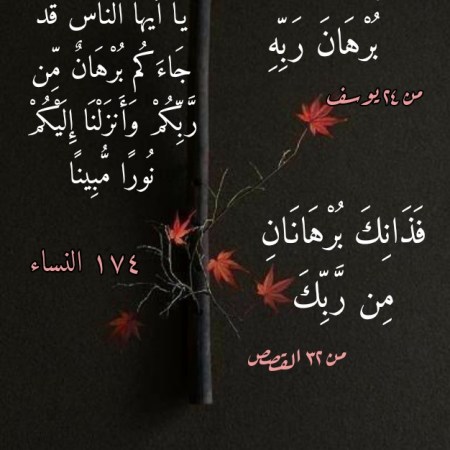 بُرْهَانَ رَبِّهِ
من ٢٤ يوسف
يَا أَيُّهَا النَّاسُ قَدْ
جَاءَكُم بُرْهَانٌ مِّن
رَّبِّكُمْ وَأَنزَلْنَا إِلَيْكُمْ
نُورًا مُّبِينًا
١٧٤ النساء
فَذَانِكَ بُرْهَانَانِ
مِن رَّبِّكَ
من ٣٢ القصص